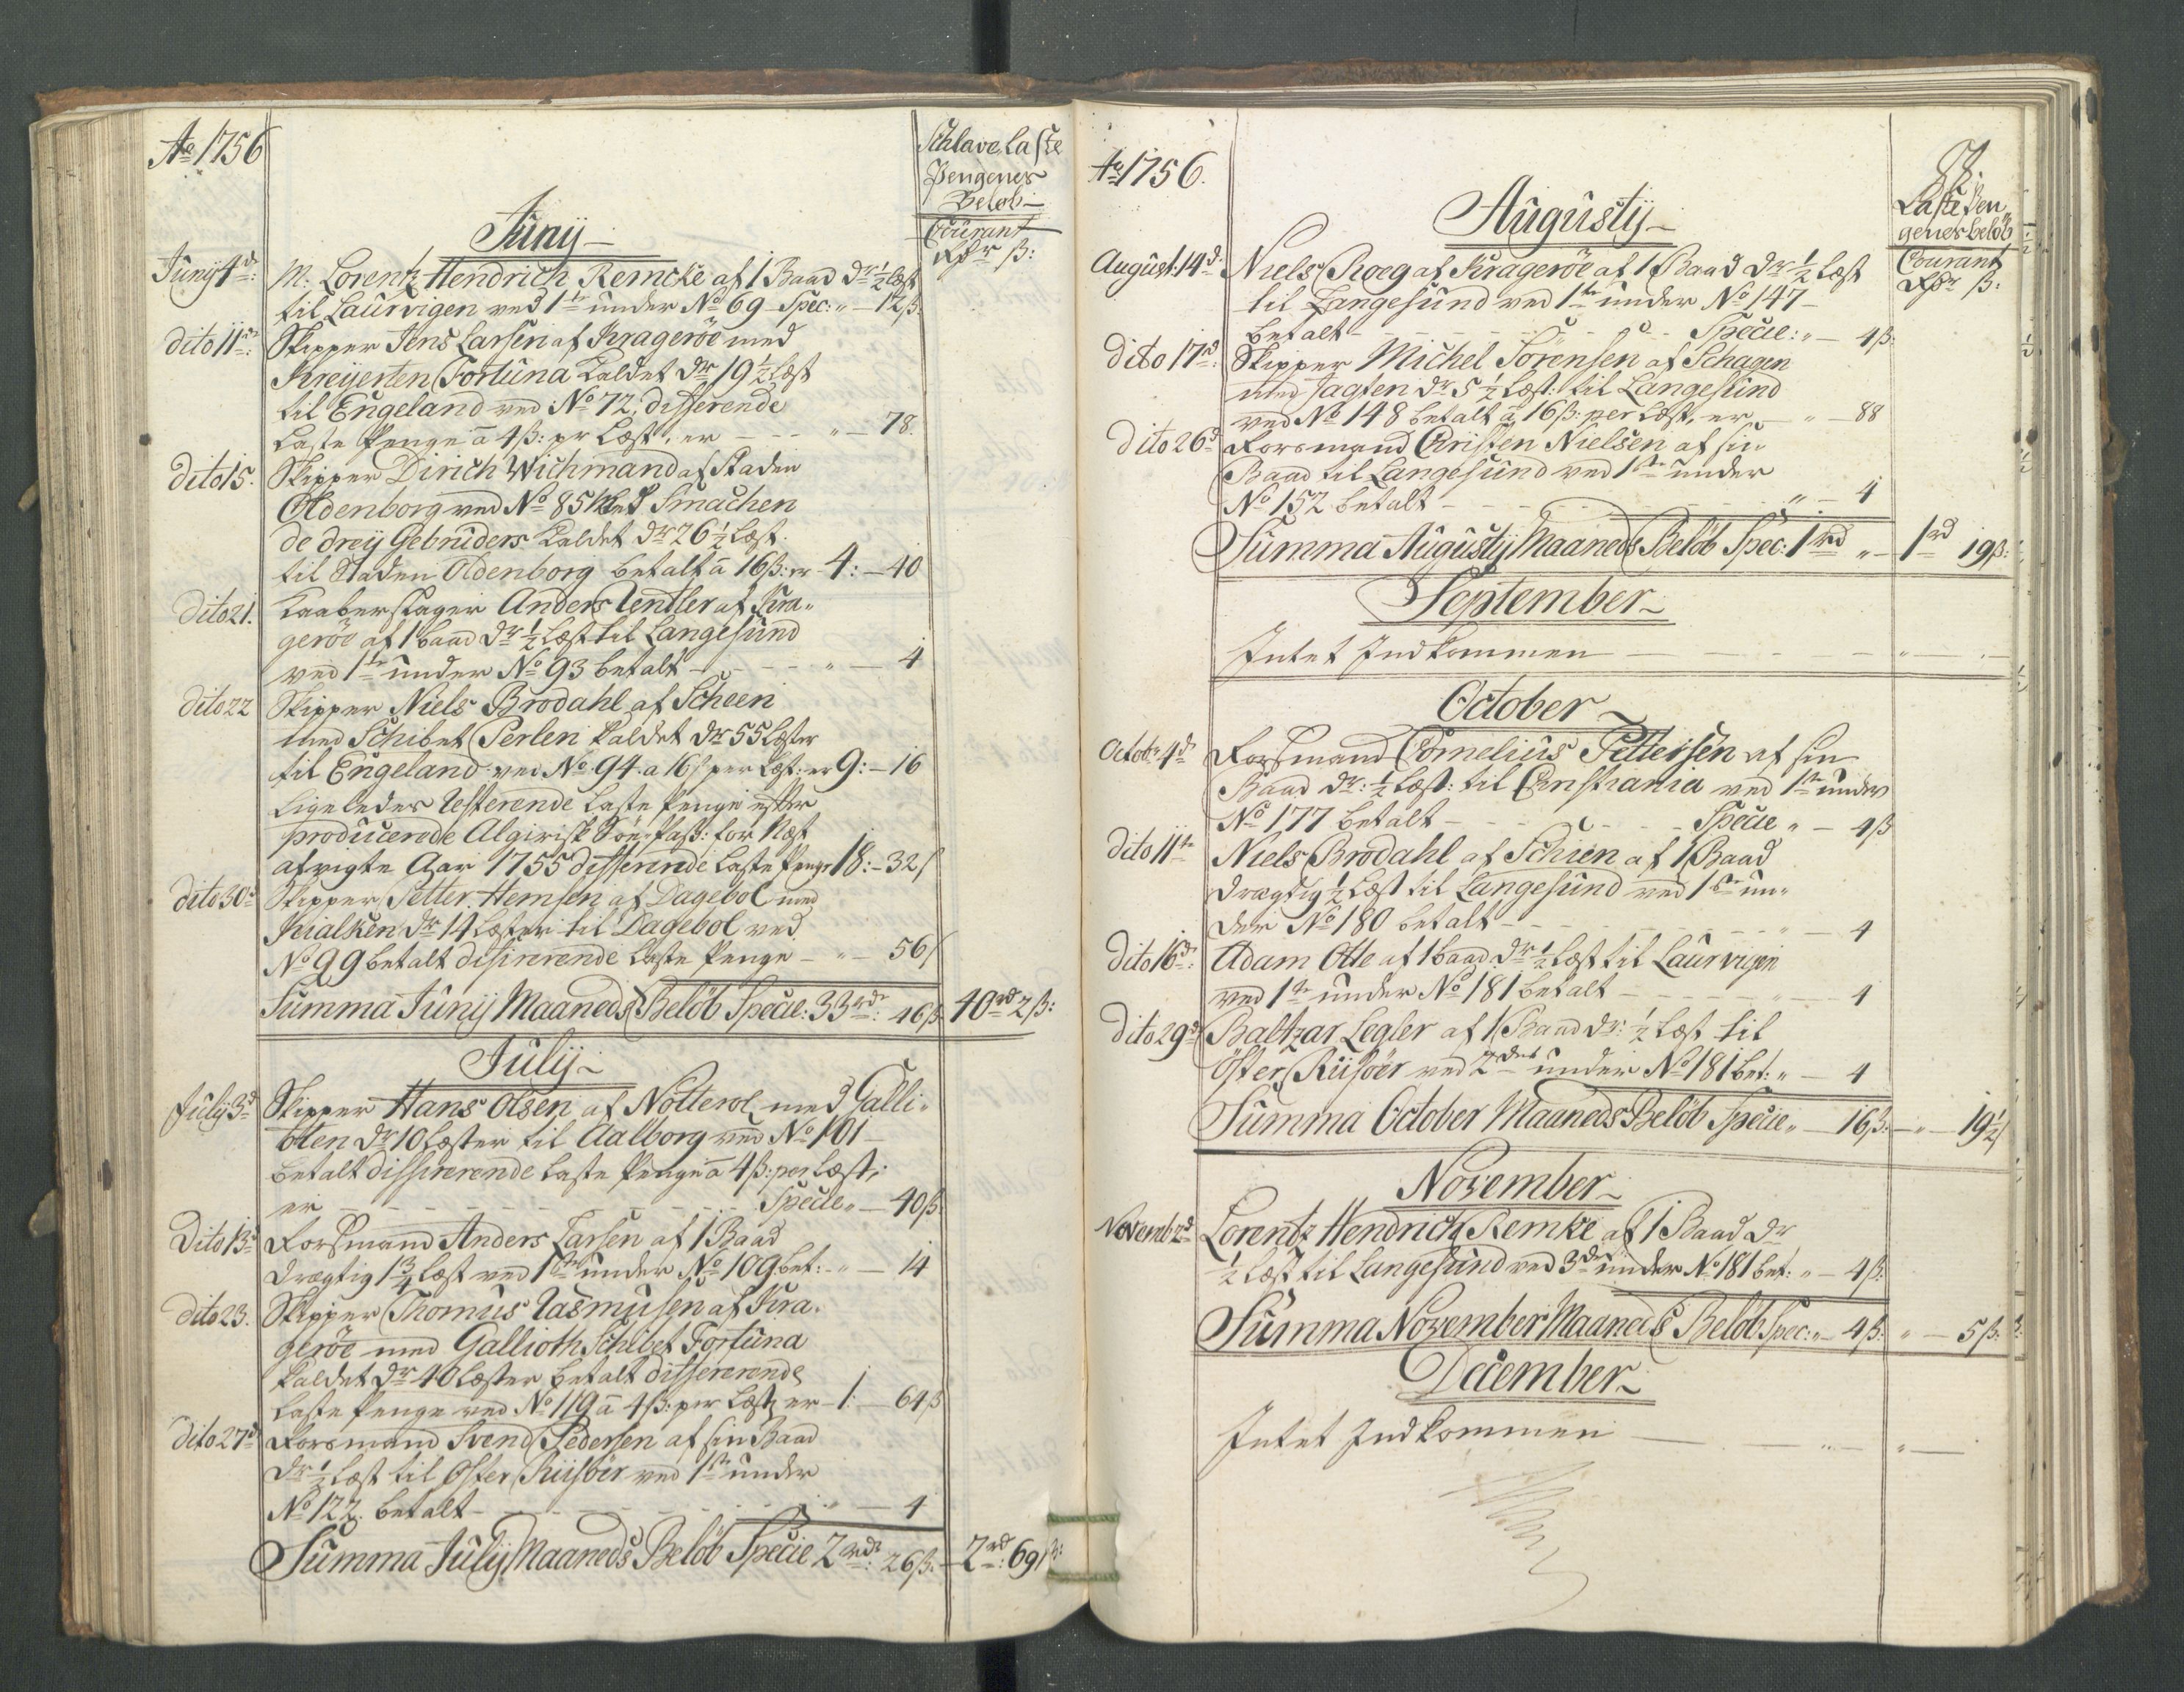 Ao 1756
Schlave Laste
Pengenes
Beløb
Courant
Rdr ß:
Junÿ
Junÿ 4d: M: Lorentz Hendrich Remcke af 1 Baad dr 1/2 Læst
til Laurvigen ved 1te under No 69 Spec: " — 12ß.
dito 11te: Skipper Jens Larsen af Krageröe med
Kreÿerten Fortuna kaldet dr 19 1/2 Læst
til Engeland ved No 72, differende
Laste Penge â 4ß: pr Læst, er — " — 78.
dito 15. Skipper Dirich Wichmand af Staden
Oldenborg ved No 85 Smachen
de dreÿ Gebrüders kaldet dr 26 1/2 Læst.
til Staden Oldenborg betalt â 16ß: er 4: — 40
dito 21. Kaaberslager Anders Uentler af Kra-
geröe af 1 baad dr 1/2 Læst til Langesund
ved 1te under No 93 betalt — " — 4
dito 22 Skipper Niels Brodahl af Scheen
med Schibet Perlen kaldet dr 55 Læster
til Engeland ved No 94. a 16ß per Læst: er 9: — 16
Ligeledes Laste Penge efter
producerede Algirisk Söe Pass: for Næst
afvigte Aar 1755 differende Laste Penge 18: — 32ß
dito 30d Skipper Petter Hemsen af Dagebol med
Kialken dr 14 Læster til Dagebol ved
No 99 betalt Laste Penge — " — 56ß
Summa Junÿ Maaneds Beløb Specie: 33rdr: 46ß 40rd 2ß:
Julÿ
Julÿ 3d Skipper Hans Olsen af Nötterol med Galli-
oten dr 10 Læster til Aalborg ved No 101
betalt Laste Penge â 4ß: per Læst,
er — Specie " — 40ß.
Dito 13d Forsmand Anders Larsen af 1 Baad
drægtig 1 3/4 Læst ved 1te under No 109 bet: " — 14
dito 23. Skipper Thomas Rasmusen af Kra-
geröe med Gallioth Schibet Fortuna
kaldet dr 40 Læster betalt differerende
Laste Penge ved No 119 â 4ß: per Læst, er — 1: — 64ß
Dito 27d Forsmand Svend Pedersen af sin Baad
dr 1/2 Læst til Oster Riisöer ved 1te under
No 122. betalt — " — 4
Summa Julÿ Maaneds Beløb Specie 2rdr: 26ß. — 2rd: 69ß:
Ao 1756.
Laste Pen
genes beløb
Courant
Rdr ß:
Augustÿ
August: 14d. Niels Roeg af Krageröe af 1 Baad dr 1/2 Læst
til Langesund ved 1te under No 147
betalt — Specie: " — 4ß.
dito 17d: Skipper Michel Sörensen af Schagen
med Jagten dr 5 1/2 Læst: til Langesund
ved No 148 betalt â 16ß: per Læst, er — " — 88
dito 26d Forsmand Christen Nielsen af sin
Baad til Langesund ved 1te under
No 152 betalt — " — 4
Summa Augustÿ Maaneds Beløb Spec: 1rd " — 1rd 19ß:
September
Intet Indkommen — " —
October
Octob: 4d Forsmand Cornelius Pettersen af sin
Baad dr: 1/2 Læst: til Christiania ved 1te under
No 177 betalt — Specie " — 4ß
dito 11te Niels Brodahl af Schien af 1 Baad
drægtig 1/2 Læst til Langesund ved 1te un-
der No 180 betalt — " — 4
dito 16d: Adam Otte af 1 baad dr 1/2 Læst til Laurvigen
ved 1te under No 181 betalt — " — 4
dito 29d Baltzar Legler af 1 Baad dr: 1/2 Læst til
Öster Riisöer ved 2det under No 181 bet: " — 4
Summa October Maaneds Beløb Specie " — 16ß: — " — 19 1/2ß
November
Novemb: 2d Lorentz Hendrich Remke af 1 Baad dr
1/2 Læst til Langesund ved 3de under No 181 bet: " — 4ß:
Summa November Maaneds Beløb Spec: " — 4ß: " — 5ß:
December
Intet Indkommen — " — " —